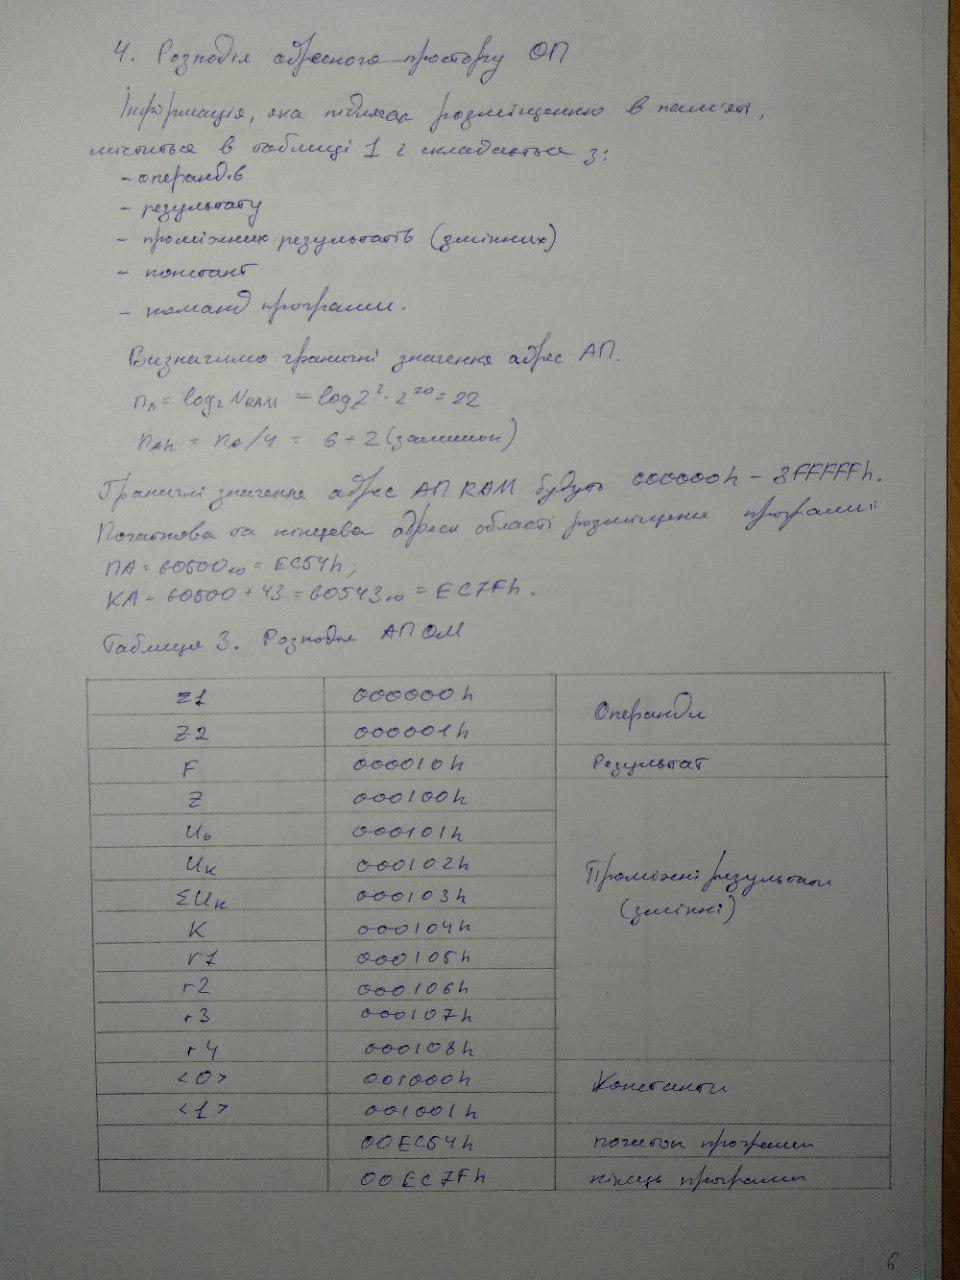 4. Розподіл адресного простору ОП
Інформація, яка підлягає розміщенню в пам'яті,
міститься в таблиці 1 і складається з:
- операндів
- результату
- проміжних результатів (змінних)
- констант
- команд програми.
Визначимо граничні значення адрес АП.
nA = log2 NRAM = log 2² · 2²⁰ = 22
nAh = nA/4 = 6 + 2 (залишок)
Граничні значення адрес АП RAM будуть 000000h – 3FFFFFh.
Початкова та кінцева адреси області розміщення програми
ПА = 60500₁₀ = EC54h;
КА = 60500 + 43 = 60543₁₀ = EC7Fh.
Таблиця 3. Розподіл АП ОМ
Z1 000000h Операнди
Z2 000001h
F 000010h Результат
Z 000100h Проміжні результати (змінні)
U₀ 000101h
Uк 000102h
ΣUк 000103h
K 000104h
r1 000105h
r2 000106h
r3 000107h
r4 000108h
<0> 001000h Константи
<1> 001001h
00EC54h початок програми
00EC7Fh кінець програми
6